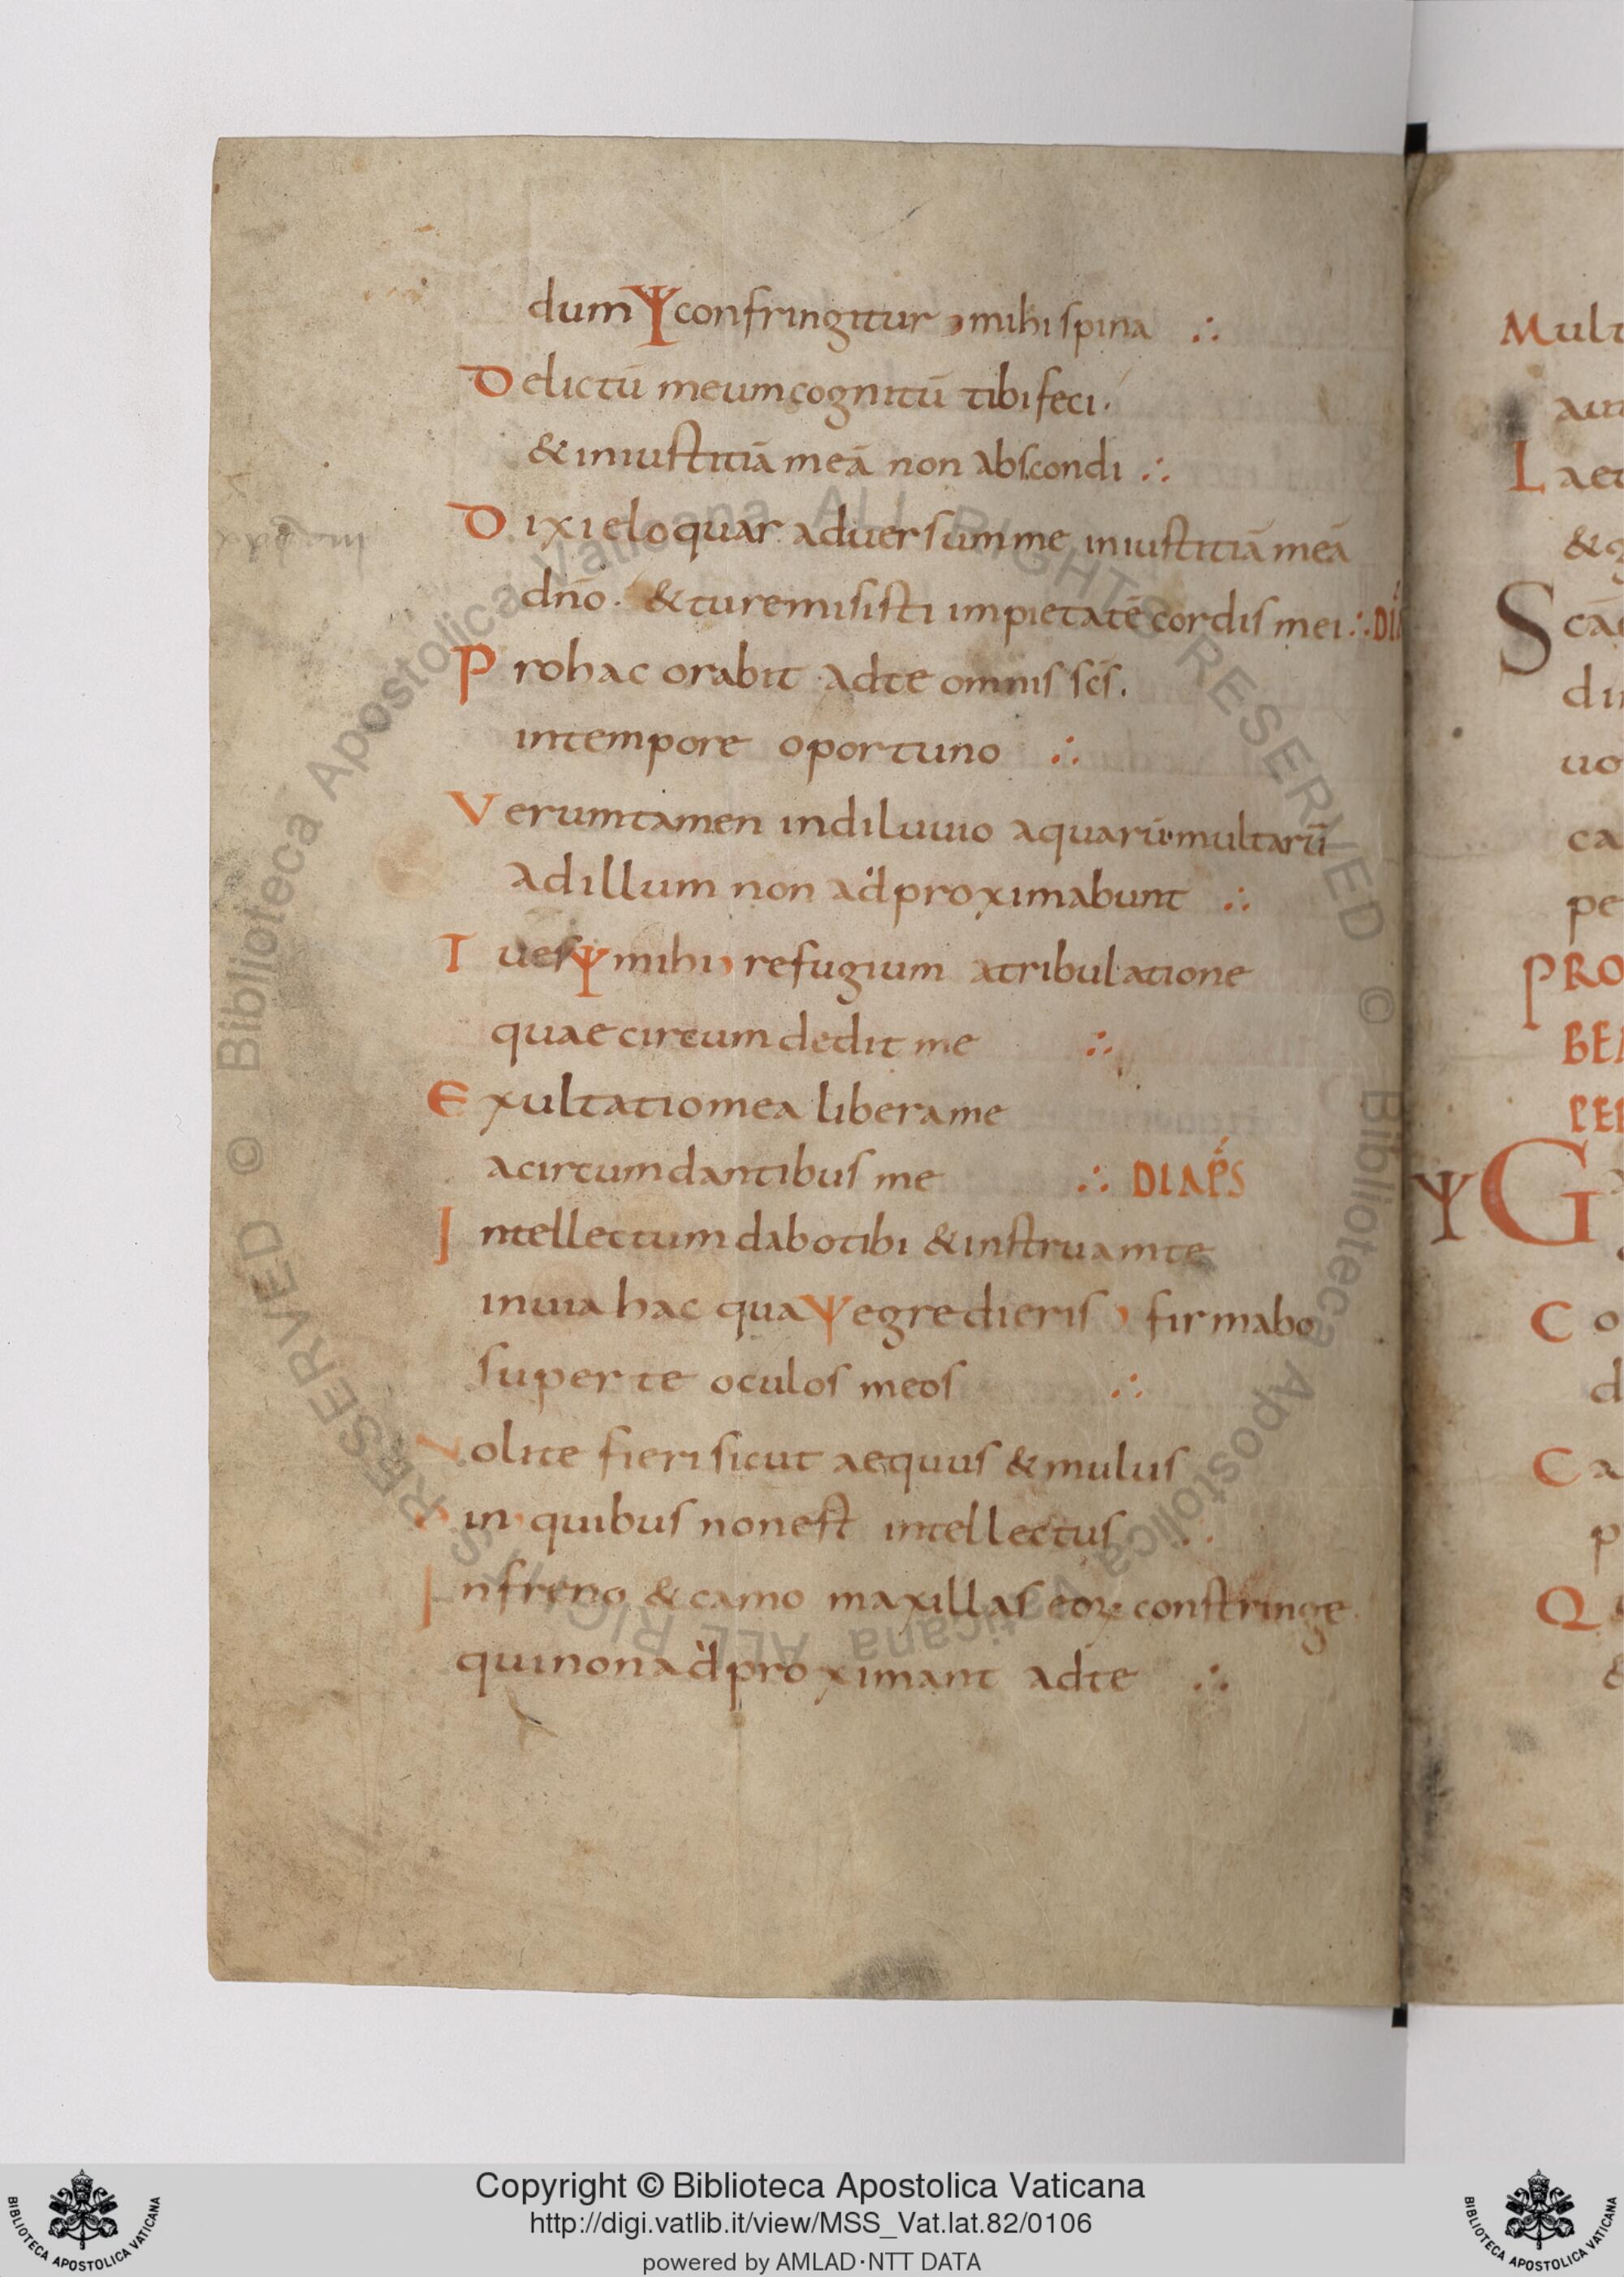 dumΨconfringitur mihi spina ∴
Delictū meum cognitū tibi feci.
& iniustitiā meā non abscondi ∴
Dixi eloquar aduersum me iniustitiā meā
dn̄o. & tu remisisti impietatē cordis mei ∴ DIA
Pro hac orabit ad te omnis sc̄s.
in tempore oportuno ∴
Verumtamen in diluuio aquarū multarū
ad illum non adproximabunt ∴
Tu es Ψ mihi refugium a tribulatione
quae circumdedit me ∴
Exultatio mea libera me
a circumdantibus me ∴ DIAPS
Intellectum dabo tibi & instruam te
in uia hac qua Ψ egredieris firmabo
super te oculos meos ∴
Nolite fieri sicut aequus & mulus
in quibus non est intellectus ∴
In freno & camo maxillas eoꝝ constringe
qui non adproximant ad te ∴
Mult
aut
Laet
&q
Scā
di
uo
ca
pe
PRO
BEN
PER
ΨG
Co
d
Ca
p
Q
&
Copyright © Biblioteca Apostolica Vaticana
http://digi.vatlib.it/view/MSS_Vat.lat.82/0106
powered by AMLAD·NTT DATA
BIBLIOTECA APOSTOLICA VATICANA
BIBLIOTECA APOSTOLICA VATICANA
© Biblioteca Apostolica Vaticana ALL RIGHTS RESERVED © Biblioteca Apostolica Vaticana ALL RIGHTS RESERVED